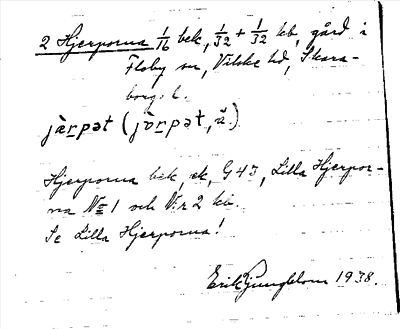 2 Hjerporna 1/16 bek, 1/32 + 1/32 kb, gård i
Floby sn, Vilske hd, Skara-
borg. l.
jàrpət (jòrpət, ä.)
Hjerporna bek, ek, G 43, Lilla Hjerpor-
na No 1 och N:r 2 kb.
Se Lilla Hjerporna!
Erik Ljungblom 1938.